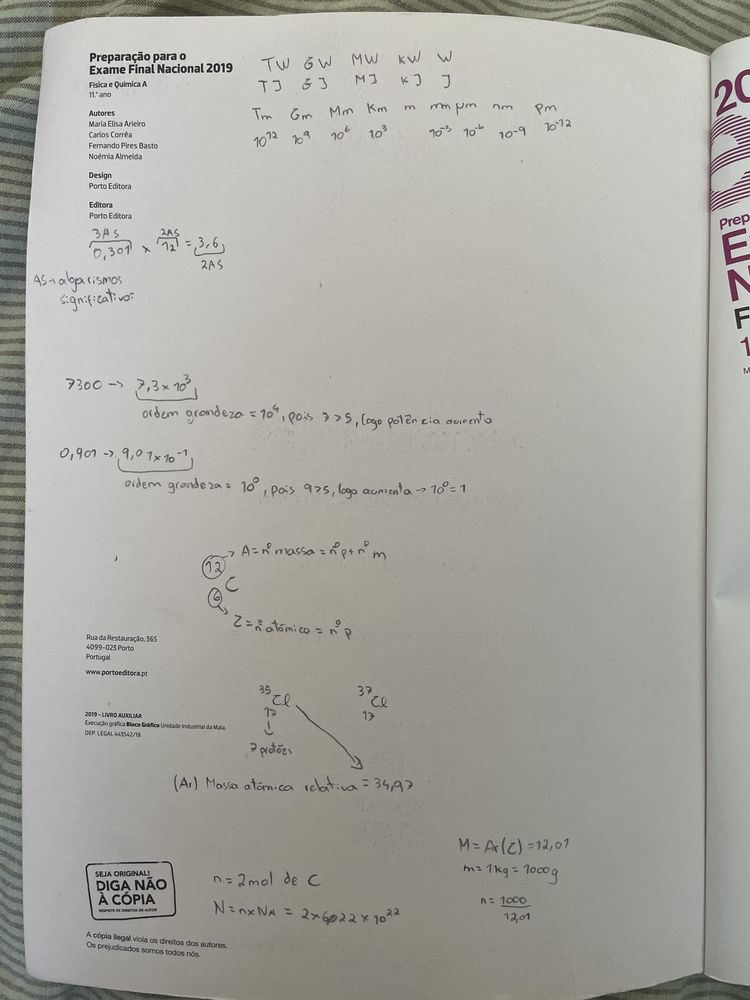 Preparação para o
Exame Final Nacional 2019
Física e Química A
11.º ano
Autores
Maria Elisa Arieiro
Carlos Corrêa
Fernando Pires Basto
Noémia Almeida
Design
Porto Editora
Editora
Porto Editora
TW GW MW KW W
TJ GJ MJ KJ J
Tm Gm Mm Km m mm μm nm pm
10^12 10^9 10^6 10^3 10^-3 10^-6 10^-9 10^-12
3AS 2AS
0,301 × 12 = 3,6
2AS
AS → algarismos
significativos
7300 → 7,3 × 10^3
ordem grandeza = 10^4, pois 7 > 5, logo potência aumenta
0,901 → 9,01 × 10^-1
ordem grandeza = 10^0, pois 9 > 5, logo aumenta → 10^0 = 1
12 → A = nº massa = nº p + nº m
C
6
Z = nº atómico = nº p
Rua da Restauração, 365
4099-023 Porto
Portugal
www.portoeditora.pt
35 Cl 37 Cl
17 17
7 protões
2019 – LIVRO AUXILIAR
Execução gráfica Bloco Gráfico Unidade Industrial da Maia.
DEP. LEGAL 443542/18
(Ar) Massa atómica relativa = 34,97
M = Ar(C) = 12,01
m = 1kg = 1000g
n = 1000
12,01
SEJA ORIGINAL!
DIGA NÃO
À CÓPIA
RESPEITE OS DIREITOS DE AUTOR
n = 2 mol de C
N = n × NA = 2 × 6,022 × 10^22
A cópia ilegal viola os direitos dos autores.
Os prejudicados somos todos nós.
20
Prep
E
N
F
1
M